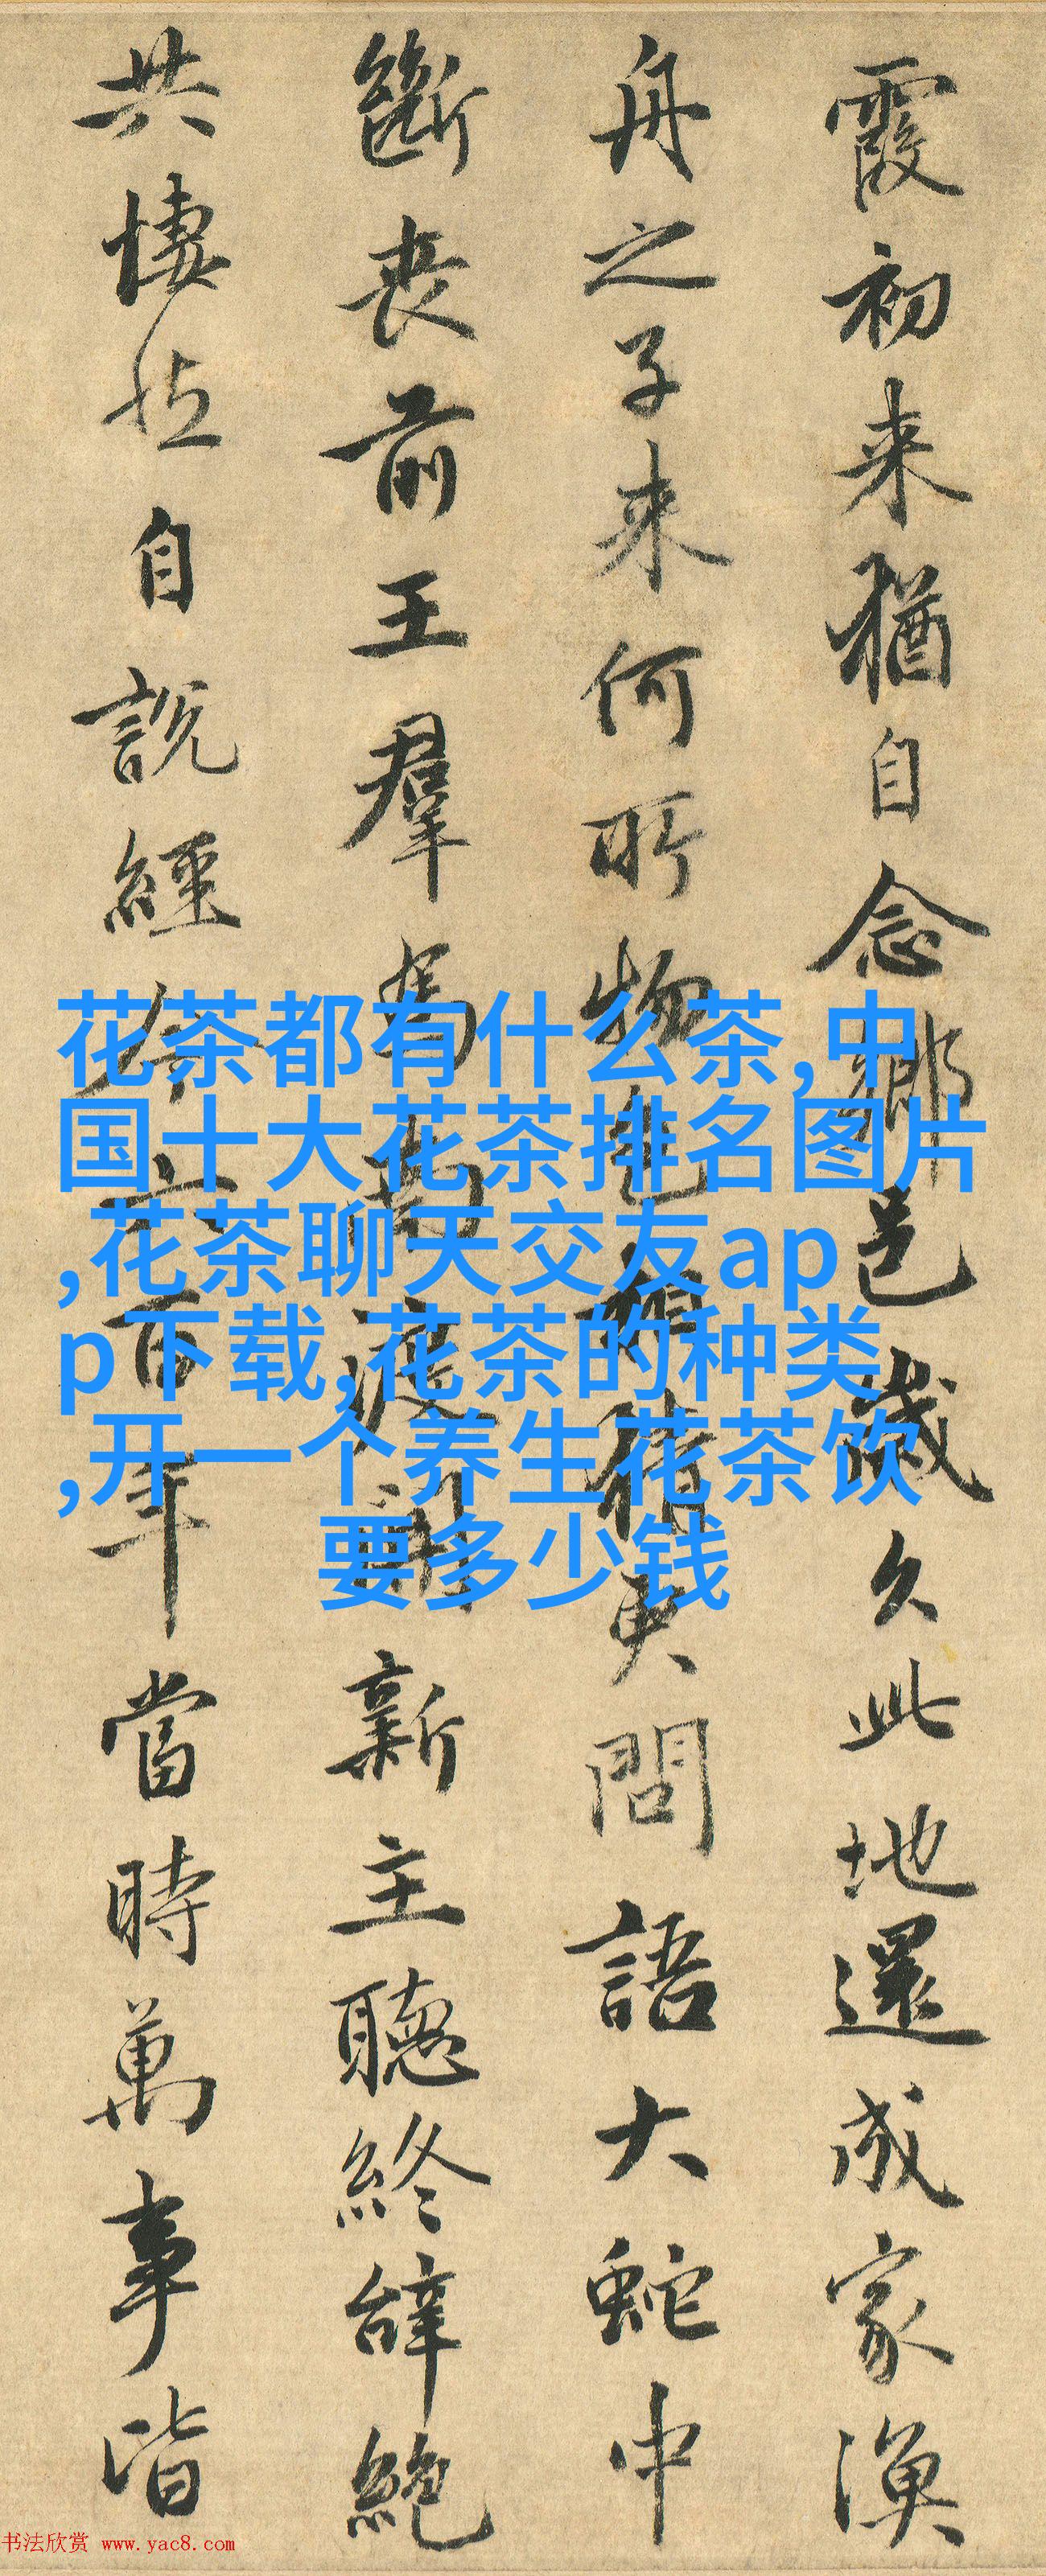 霞初来猶自念鄉邑歲久此地還成家漁
舟之子来何所物色相猜更問語大蛇中
斷丧前王羣馬南渡開新主聽終辞絶
共悽然自說經今六百年當時萬事皆
花茶都有什么茶,中
国十大花茶排名图片
,花茶聊天交友ap
p下载,花茶的种类
,开一个养生花茶饮
要多少钱
书法欣赏 www.yac8.com